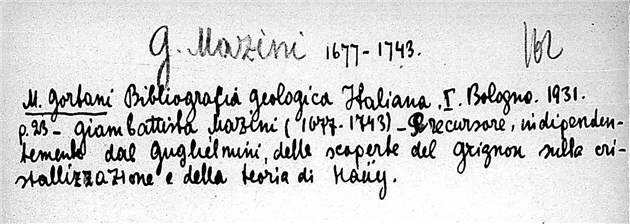 G. Mazini 1677-1743.
M. Gortani Bibliografia geologica Italiana. I. Bologna. 1931.
p. 23 - Giambattista Mazini (1677-1743) - Precursore, indipenden-
temente dal Guglielmini, delle scoperte del Grignon sulla cri-
stallizzazione e della teoria di Haüy.